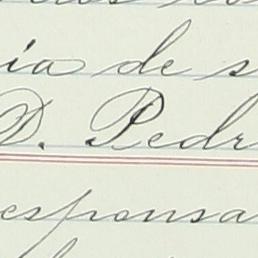 ia de s
D. Pedr
esponsa